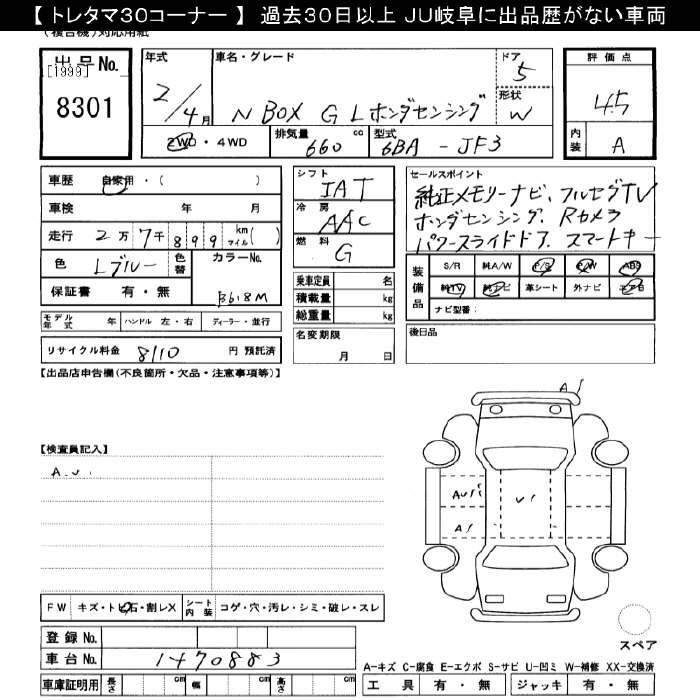 【 トレタマ30コーナー 】 過去30日以上 JU岐阜に出品歴がない車両
(複合機)対応用紙
出品No.
[1999]
8301
年式
2/4月
車名・グレード
N BOX G Lホンダセンシング
ドア
5
形状
W
評価点
4.5
内装
A
2WD・4WD
排気量 cc
660
型式
6BA - JF3
車歴 自家用・( )
車検 年 月
走行 2万7千899 km マイル( )
色 Lブルー
色替
カラーNo.
B618M
保証書 有・無
シフト
IAT
冷房
AAC
燃料
G
乗車定員 名
積載量 kg
総重量 kg
セールスポイント
純正メモリーナビ、フルセグTV
ホンダセンシング、Rカメラ
パワースライドドア、スマートキー
装備品
S/R 純A/W P/S P/W ABS
純TV 純ナビ 革シート 外ナビ エアB
ナビ型番:
モデル年式 年 ハンドル 左・右 ディーラー・並行
名変期限
月 日
後日品
リサイクル料金 8110 円 預託済
【出品店申告欄(不良箇所・欠品・注意事項等)】
A1
【検査員記入】
A.U1
AU1
U1
A1
FW キズ・トビ石・割レX シート内装 コゲ・穴・汚レ・シミ・破レ・スレ
登録No.
スペア
車台No. 1470883
A-キズ C-腐食 E-エクボ S-サビ U-凹ミ W-補修 XX-交換済
車庫証明用 長さ cm 幅 cm 高さ cm
工具 有・無 ジャッキ 有・無